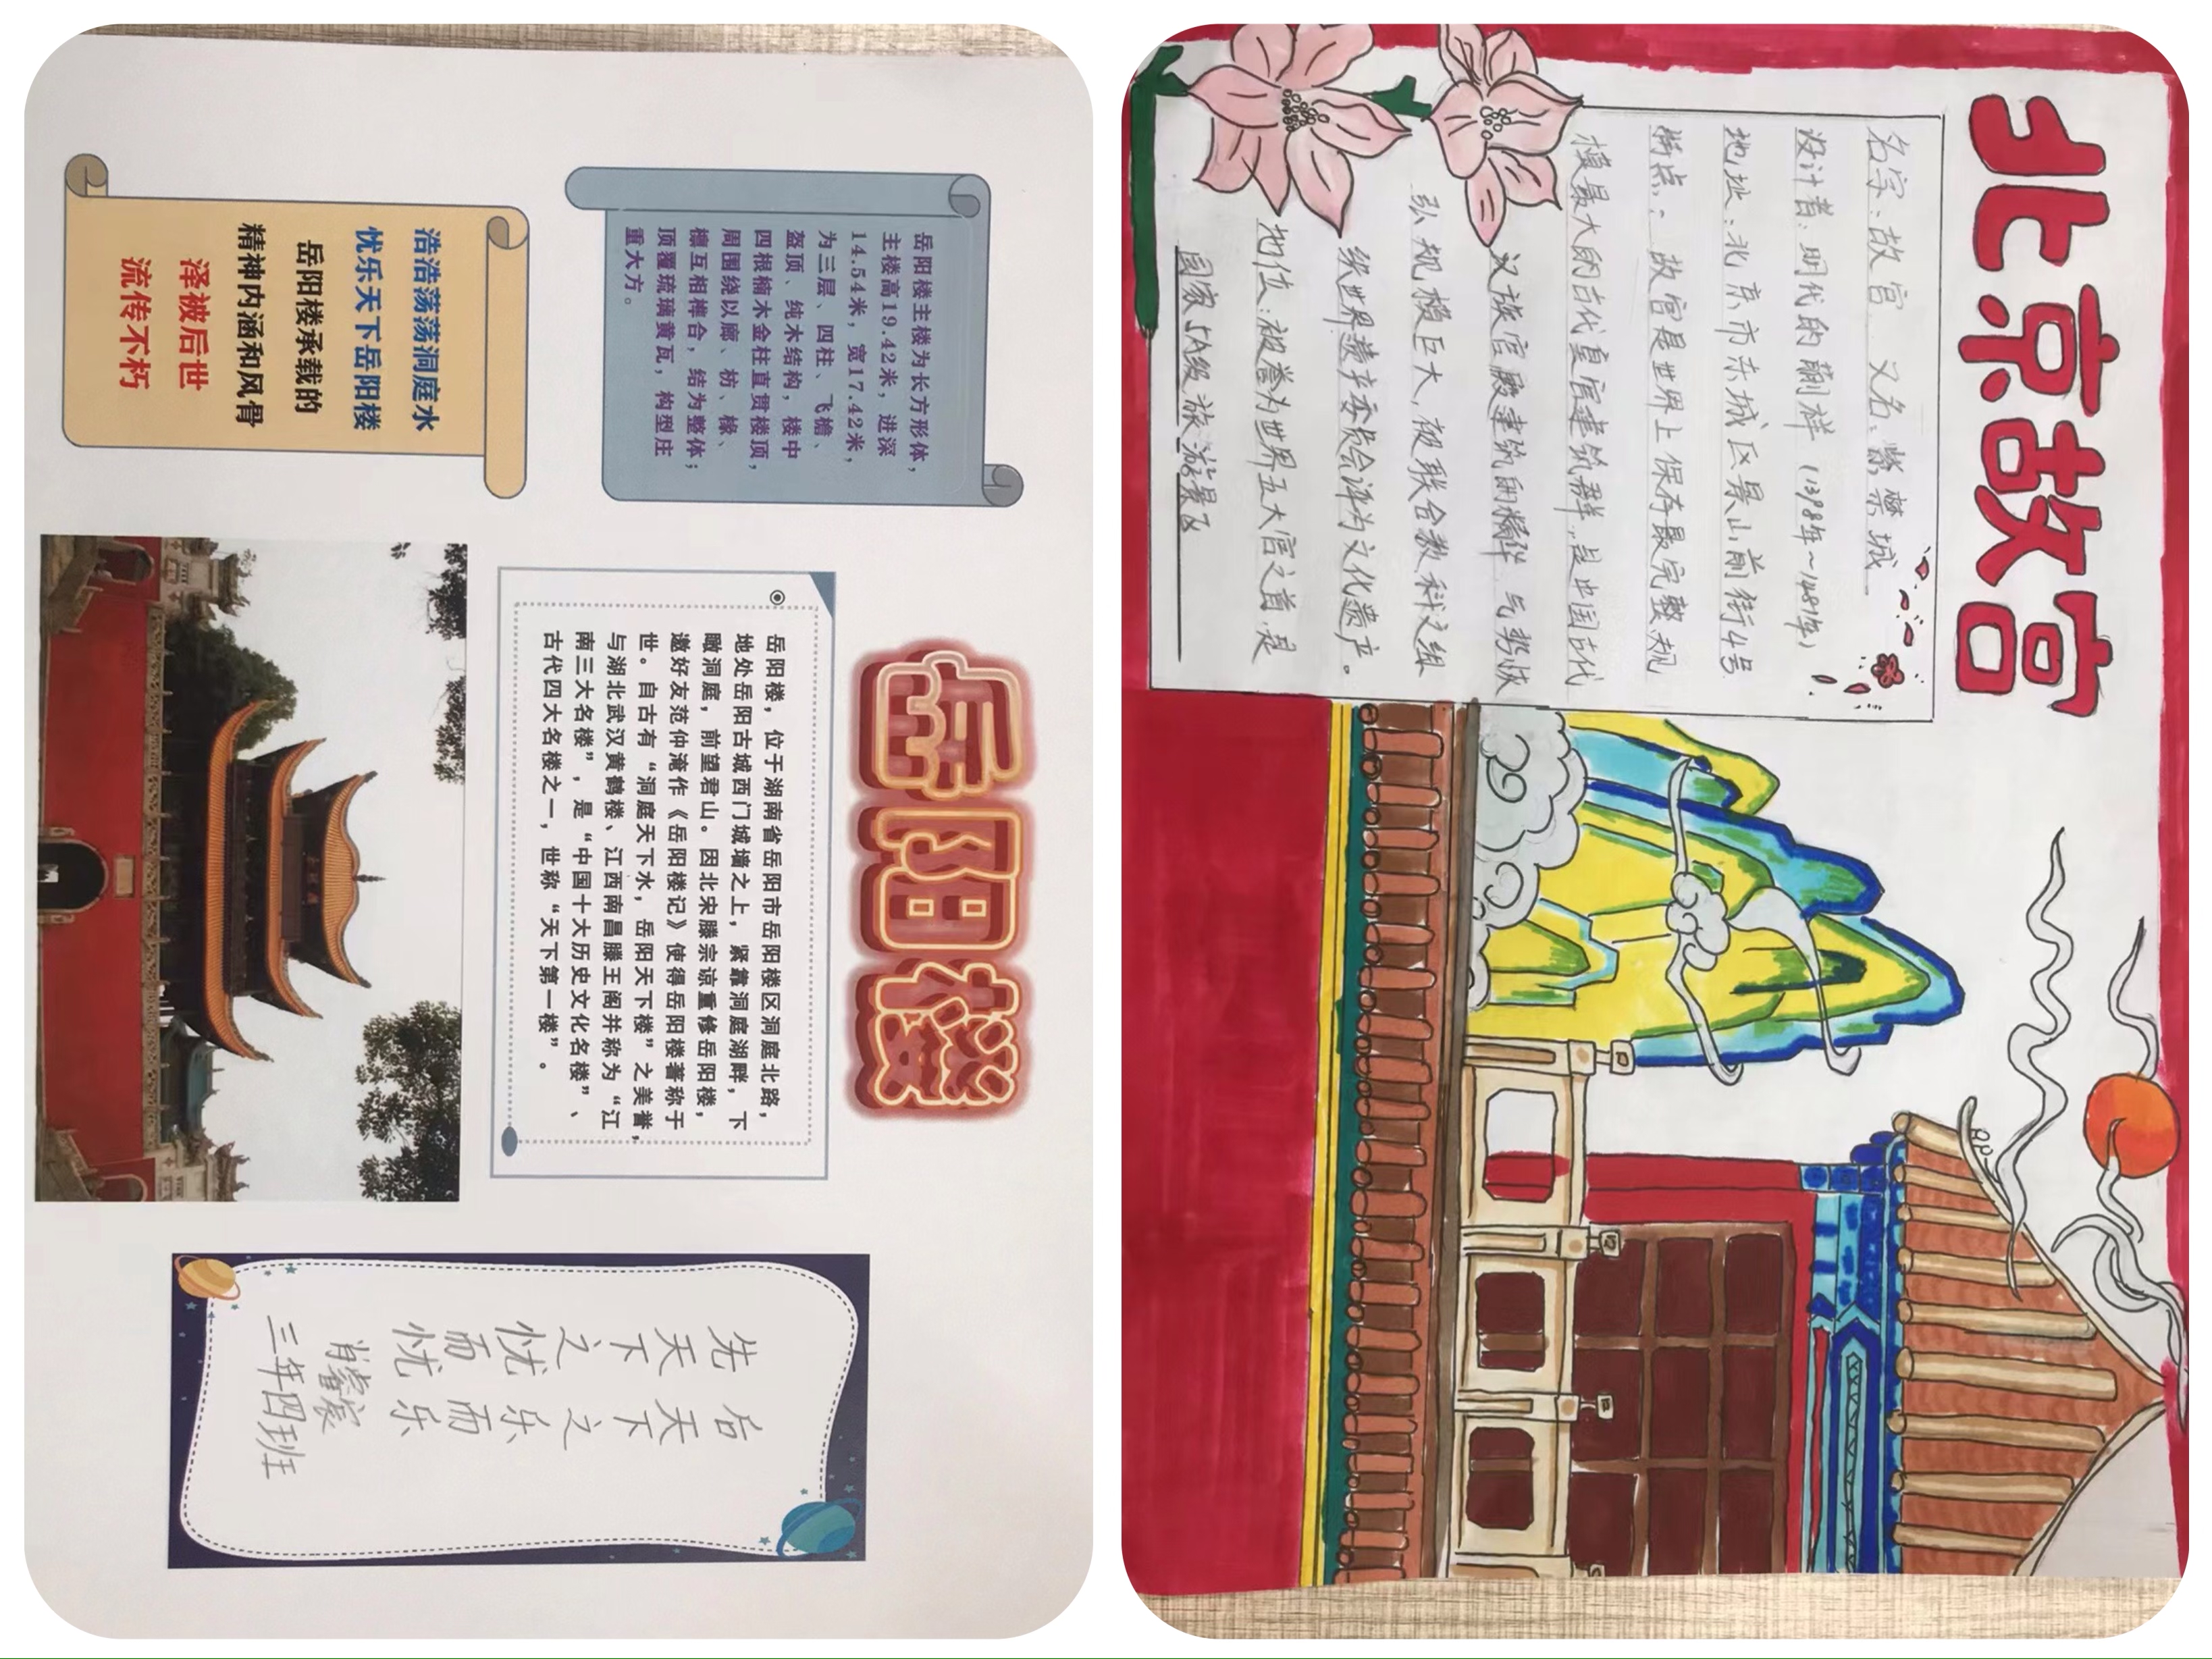 岳阳楼
岳阳楼主楼为长方形体，
主楼高19.42米，进深
14.54米，宽17.42米，
为三层、四柱、飞檐、
盔顶、纯木结构，楼中
四根楠木金柱直贯楼顶，
周围绕以廊、枋、椽、
檩互相榫合，结为整体；
顶覆琉璃黄瓦，构型庄
重大方。
浩浩荡荡洞庭水
忧乐天下岳阳楼
岳阳楼承载的
精神内涵和风骨
泽被后世
流传不朽
岳阳楼，位于湖南省岳阳市岳阳楼区洞庭北路，
地处岳阳古城西门城墙之上，紧靠洞庭湖畔，下
瞰洞庭，前望君山。因北宋滕宗谅重修岳阳楼，
邀好友范仲淹作《岳阳楼记》使得岳阳楼著称于
世。自古有“洞庭天下水，岳阳天下楼”之美誉，
与湖北武汉黄鹤楼、江西南昌滕王阁并称为“江
南三大名楼”，是“中国十大历史文化名楼”、
古代四大名楼之一，世称“天下第一楼”。
先 后
天 天
下 下
之 之
忧 乐
而 而
忧 乐
肖睿宸
三年四班
北京故宫
名字：故宫 又名：紫禁城
设计者：明代的蒯祥（1398年～1481年）
地址：北京市东城区景山前街4号
特点：故宫是世界上保存最完整规
模最大的古代皇宫建筑群，是中国古代
汉族宫殿建筑的精华 气势恢
弘 规模巨大，被联合教科文组
织世界遗产委员会评为文化遗产。
地位：被誉为世界五大宫之首，是
国家5A级旅游景区